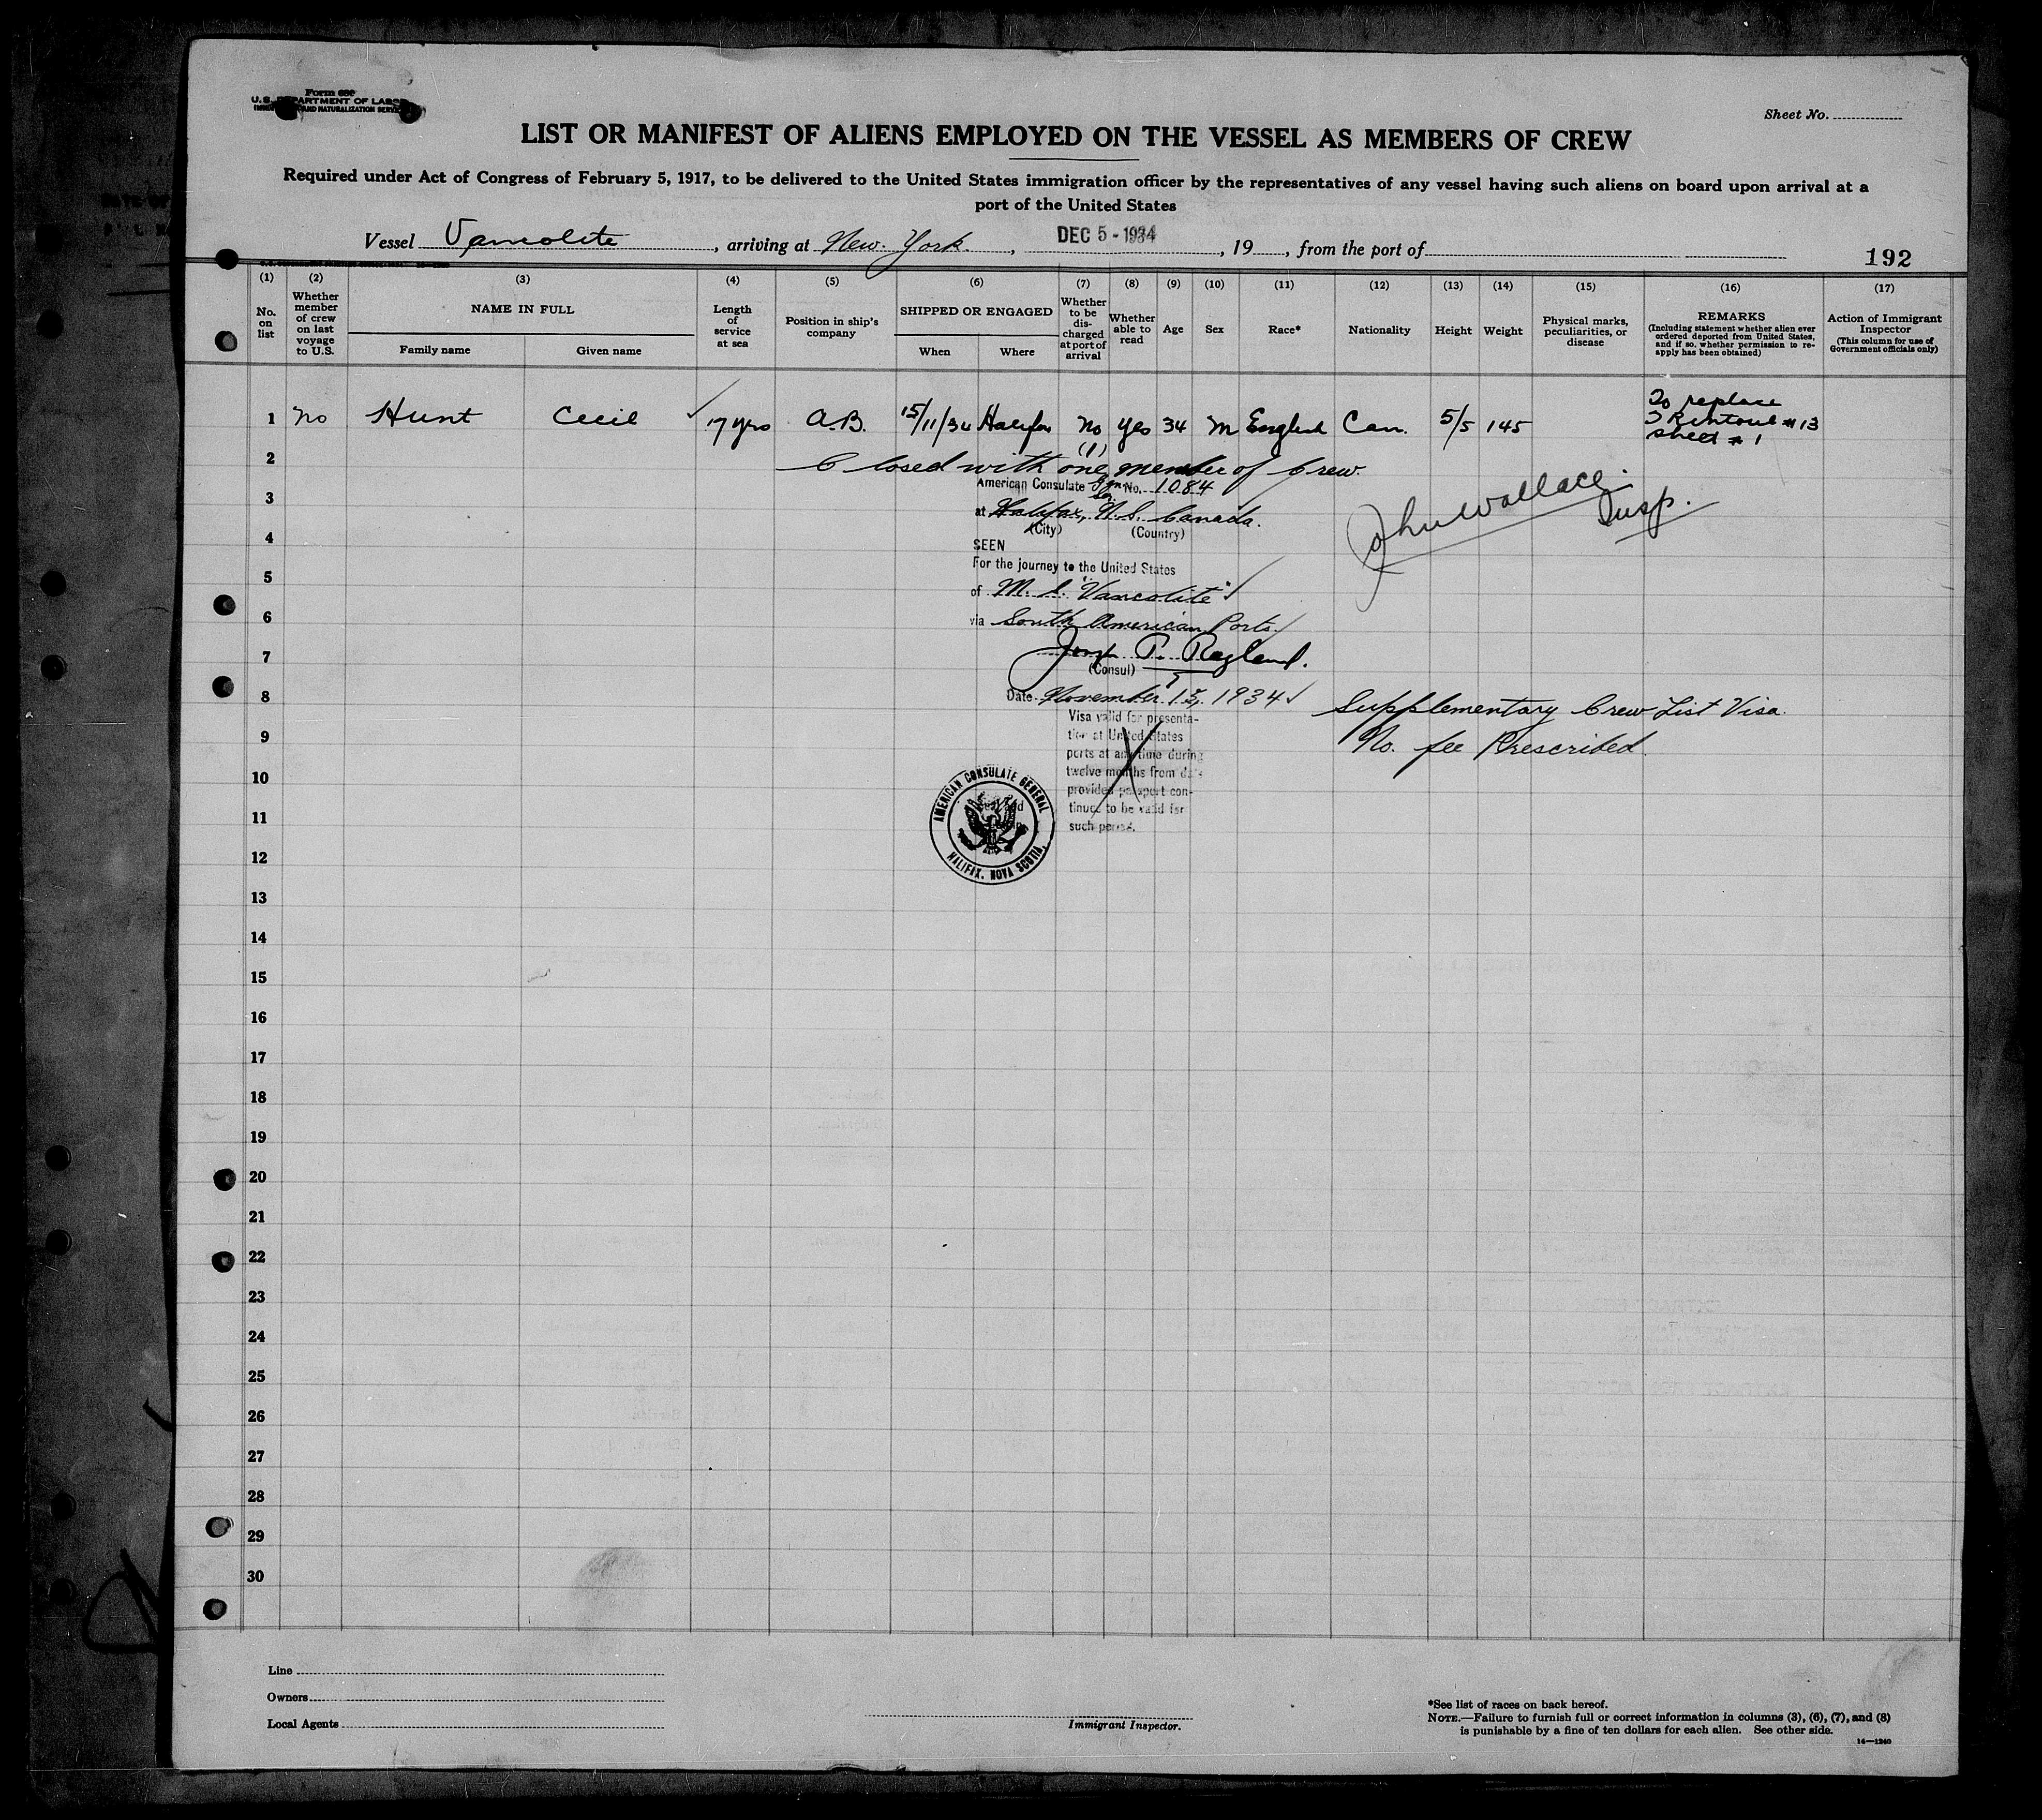 Form 680
U.S. DEPARTMENT OF LABOR
IMMIGRATION AND NATURALIZATION SERVICE
Sheet No.
LIST OR MANIFEST OF ALIENS EMPLOYED ON THE VESSEL AS MEMBERS OF CREW
Required under Act of Congress of February 5, 1917, to be delivered to the United States immigration officer by the representatives of any vessel having such aliens on board upon arrival at a
port of the United States
Vessel Vancolite, arriving at New York, DEC 5 - 1934, 19, from the port of
192
(1) (2) (3) (4) (5) (6) (7) (8) (9) (10) (11) (12) (13) (14) (15) (16) (17)
No. on list
Whether member of crew on last voyage to U.S.
NAME IN FULL
Family name
Given name
Length of service at sea
Position in ship's company
SHIPPED OR ENGAGED
When
Where
Whether to be discharged at port of arrival
Whether able to read
Age
Sex
Race*
Nationality
Height
Weight
Physical marks, peculiarities, or disease
REMARKS
(Including statement whether alien ever ordered deported from United States, and if so, whether permission to re-apply has been obtained)
Action of Immigrant Inspector
(This column for use of Government officials only)
1 No Hunt Cecil 17 yrs A.B. 15/11/34 Halifax No Yes 34 M English Can. 5/5 145
To replace
#13
sheet #1
2 (1)
Closed with one member of Crew.
American Consulate Gen No. 1084
3 at Halifax, N.S. Canada.
(City) (Country)
John Wallace
Insp.
4 SEEN
For the journey to the United States
5 of M.S. "Vancolite"
6 via South American Ports
7 Joseph P. Ragland.
(Consul)
8 Date November 15, 1934
Supplementary Crew List Visa
No fee Prescribed
Visa valid for presenta-
9 tion at United States
ports at any time during
10 twelve months from date
provided passport con-
11 tinues to be valid for
such period.
AMERICAN CONSULATE GENERAL
HALIFAX, NOVA SCOTIA.
12
13
14
15
16
17
18
19
20
21
22
23
24
25
26
27
28
29
30
Line
Owners
Local Agents
Immigrant Inspector.
*See list of races on back hereof.
NOTE.—Failure to furnish full or correct information in columns (3), (6), (7), and (8)
is punishable by a fine of ten dollars for each alien. See other side.
14—1240